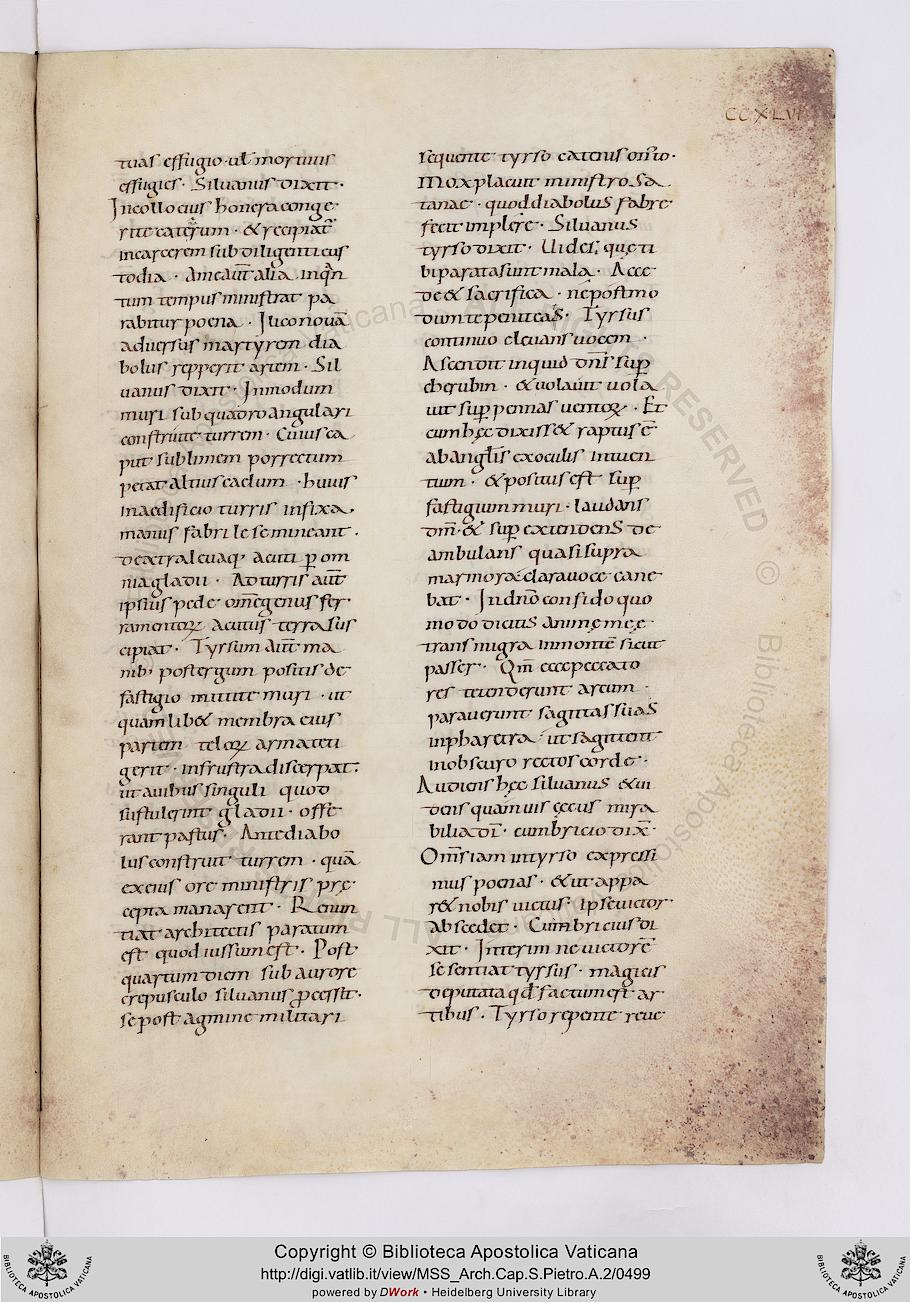 CCXLVI
tuas effugio · ul mortuus
effugies · Siluanus dixit ·
In collo eius honera conge
rite caterum · & recipiat̄
in carcerem sub diligenti cus
todia · Antea aut̄ alia
tum tempus ministrat pa
rabitur poena · Ilico nouā
aduersus martyrem dia
bolus repperit artem · Sil
uanus dixit · In modum
muri sub quadro angulari
construite turrem · Cuius ca
put sublimem porrectum
petat altius caelum · huius
in aedificio turris infixa
manus fabrile se mineant ·
dextra leuaq; acuti p om
nia gladii · Ad turris aut̄
ipsius pede om̄e genus fer
ramentoꝝ acutus terra sus
cipiat · Tyrsum aut̄ ma
nib; post ergum positis de
fastigio mittite muri · ut
quam lib& membra eius
partem teloꝝ armateti
gerit · in frustra discerpat ·
ut auibus singuli quod
sustulerint gladii · offe
rant pastus · Ante diabo
lus construit turrem · quā
ex eius ore ministris prę
cepta manarent · Renun
tiat architectis paratum
est quod iussum est · Post
quartum diem sub aurore
crepusculo siluanus ꝓcessit ·
se post agmine militari
sequente tyrso catenis onusto ·
Mox placuit ministro sa
tanae · quod diabolus fabre
fecit implere · Siluanus
tyrso dixit · Uides; quę ti
bi parata sunt mala · Acce
de & sacrifica · ne postmo
dum te peniteas · Tyrsus
continuo eleuans uocem ·
Ascendit inquid dn̄s sup
cherubin · & uolauit uola
uit sup pennas uentoꝝ · Et
cum hęc dixiss& raptus ē
ab anglis ex oculis intuen
tium · & positus est sup
fastigium muri · laudans
dm̄ · & sup extendens de
ambulans quasi supra
marmora clara uoce cane
bat · In dn̄o confido quo
modo dicitis animę męę
transmigra in montē sicut
passer · Qm̄ ecce peccato
res tetenderunt arcum ·
parauerunt sagittas suas
in pharetra · ut sagittent
in obscuro rectos corde ·
Audiens hęc siluanus & ui
dens quamuis cęcus mira
bilia dī · cum bricio dix̄ ·
Om̄s iam in tyrso expressi
mus poenas · & ut appa
r& nobis uictus · ipse uictor
abscedet · Cumbricius di
xit · Interim ne uictorē
se sentiat tyrsus · magicis
deputata qd factum est ar
tibus · Tyrso repente reue
Copyright © Biblioteca Apostolica Vaticana
http://digi.vatlib.it/view/MSS_Arch.Cap.S.Pietro.A.2/0499
powered by DWork • Heidelberg University Library
BIBLIOTECA APOSTOLICA VATICANA
BIBLIOTECA APOSTOLICA VATICANA